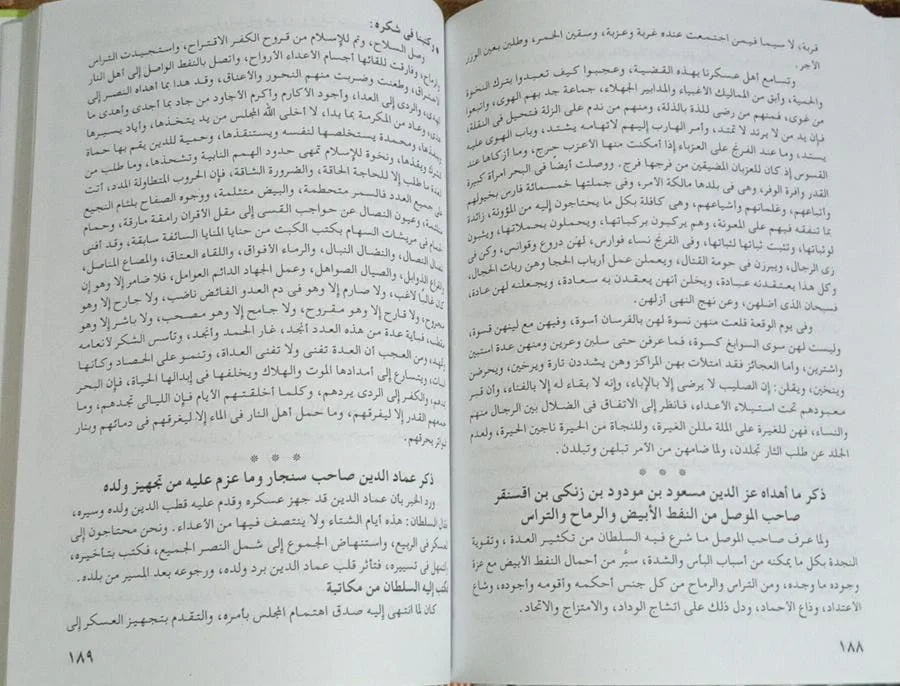 قربة، لا سيما فيمن اجتمعت عنده غربة وعزبة، وسقين الخمر، وطلبن بعين الوزر
الأجر.
وتسامع أهل عسكرنا بهذه القضية، وعجبوا كيف تعبدوا بترك النخوة
والحمية، وأبق من المماليك الأغبياء والمدابير الجهلاء، جماعة جد بهم الهوى، وأتبعوا
من غوى، فمنهم من رضى للذة بالذلة، ومنهم من ندم على الزلة فتحيل فى النقلة،
فإن يد من لا يرتد لا تمتد، وأمر الهارب إليهم لاتهامه يشتد، وباب الهوى عليه
يستد، وما عند الفرنج على العزباء إذا أمكنت منها الأعزب حرج، وما أزكاها عند
القسوس إذ كان للعزبان المضيقين من فرجها فرج. ووصلت أيضًا فى البحر امرأة كبيرة
القدر وافرة الوفر، وهى فى بلدها مالكة الأمر، وفى جملتها خمسمائة فارس بخيولهم
وأتباعهم، وغلمانهم وأشياعهم، وهى كافلة بكل ما يحتاجون إليه من المؤونة، زائدة
بما تنفقه فيهم على المعونة، وهم يركبون بركباتها، ويحملون بحملاتها، ويثبون
لوثباتها، وتثبت ثباتها لثباتها، وفى الفرنج نساء فوارس، لهن دروع وقوانس، وكن فى
زى الرجال، ويبرزن فى حومة القتال، ويعملن عمل أرباب الحجا وهن ربات الحجال،
وكل هذا يعتقدنه عبادة، ويخلن أنهن يعقدن به سعادة، ويجعلنه لهن عادة،
فسبحان الذى أضلهن، وعن نهج النهى أزلهن.
وفى يوم الوقعة قلعت منهن نسوة لهن بالفرسان أسوة، وفيهن مع لينهن قسوة،
وليست لهن سوى السوابغ كسوة، فما عرفن حتى سلبن وعرين ومنهن عدة استبين
واشترين، وأما العجائز فقد امتلأت بهن المراكز وهن يشددن تارة ويرخين، ويحرضن
وينخين، ويقلن: إن الصليب لا يرضى إلا بالإباء، وإنه لا بقاء له إلا بالفناء، وأن قبر
معبودهم تحت استيلاء الأعداء، فانظر إلى الاتفاق فى الضلال بين الرجال منهم
والنساء، فهن للغيرة على الملة مللن الغيرة، وللنجاة من الحيرة ناجين الحيرة، ولعدم
الجلد عن طلب الثأر تجلدن، ولما ضامهن من الأمر تبلهن وتبلدن.
* * *
ذكر ما أهداه عز الدين مسعود بن مودود بن زنكى بن اقسنقر
صاحب الموصل من النفط الأبيض والرماح والتراس
ولما عرف صاحب الموصل ما شرع فيه السلطان من تكثير العدة، وتقوية
النجدة بكل ما يمكنه من أسباب البأس والشدة، سيَّر من أحمال النفط الأبيض مع عزة
وجوده ما وجده، ومن التراس والرماح من كل جنس أحكمه وأقومه وأجوده، وشاع
الاعتداد، وذاع الأحماد، ودل ذلك على اتشاج الوداد، والامتزاج والاتحاد.
١٨٨
وكتبنا فى شكره:
وصل السلاح، وتم للإسلام من قروح الكفر الاقتراح، واستجيدت التراس
والرماح، وفارقت للقائها أجسام الأعداء الأرواح، واتصل بالنفط الواصل إلى أهل النار
الاحتراق، وطعنت وضربت منهم النحور والأعناق، وقد هدا بما أهداه النصر إلى
الهدى، والردى إلى العدا، وأجود الأكارم وأكرم الأجاود من جاد بما أجدى وأهدى ما
هدى، وعاد من المكرمة بما بدا، لا أخلى الله المجلس من يد يتخذها، وأياد يسيرها
وينفذها، ومحمدة يستخلصها لنفسه ويستنقذها، وحمية للدين يقم بها حماة
الشرك ويقذها، ونخوة للإسلام تمهى حدود الهمم النابية وتشحذها، وما طلب من
العدة ما طلب إلا للحاجة الحاقة، والضرورة الشاقة، فإن الحروب المتطاولة المدد، أتت
على جميع العدد فالسمر متحطمة، والبيض متثلمة، ووجوه الصفاح بلثام النجيع
متلثمة، وعيون النصال عن حواجب القسى إلى مقل الأقران رامقة مارقة، وحمام
الحمام فى مريشات السهام بكتب الكبت من حنايا المنايا السائفة سابقة، وقد أفنى
النصال، والنضال النبال، والرماء الأفواق، واللقاء العتاق، والمصاع المناصل،
والقراع الذوابل، والصيال الصواهل، وعمل الجهاد الدائم العوامل، فلا ضامر إلا وهو إن
كان غالبًا لاغب، ولا صارم إلا وهو فى دم العدو الفائض ناضب، ولا جارح إلا وهو
مجروح، ولا قارح إلا وهو مقروح، ولا جامح إلا وهو مصحب، ولا باشر إلا وهو
مقطب، فبأية عدة من هذه العدد أنجد، غار الحمد وأنجد، وتأسس الشكر لأنعامه
ومن العجب أن العدة تفنى ولا تفنى العداة، وتنمو على الحصاد وكأنها
النبات، ويتسارع إلى أمدادها الموت والهلاك ويخلفها فى إبدالها الحياة، فإن البحر
والكفر إلى الردى يردهم، وكلما أخلقتهم الأيام فإن الليالى تجدهم، وما
جمعهم القدر إلا ليفرقهم، وما حمل أهل النار فى الماء إلا ليغرقهم فى دمائهم وبنار
يحرقهم.
* * *
ذكر عماد الدين صاحب سنجار وما عزم عليه من تجهيز ولده
ورد الخبر بأن عماد الدين قد جهز عسكره وقدم عليه قطب الدين ولده وسيره،
فقال السلطان: هذه أيام الشتاء ولا ينتصف فيها من الأعداء. ونحن محتاجون إلى
العسكر فى الربيع، واستنهاض الجموع إلى شمل النصر الجميع، فكتب بتأخيره،
والتمهل فى تسييره، فتأثر قلب عماد الدين برد ولده، ورجوعه بعد المسير من بلده.
فكتب إليه السلطان من مكاتبة
كان لما انتهى إليه صدق اهتمام المجلس بأمره، والتقدم بتجهيز العسكر إلى
١٨٩